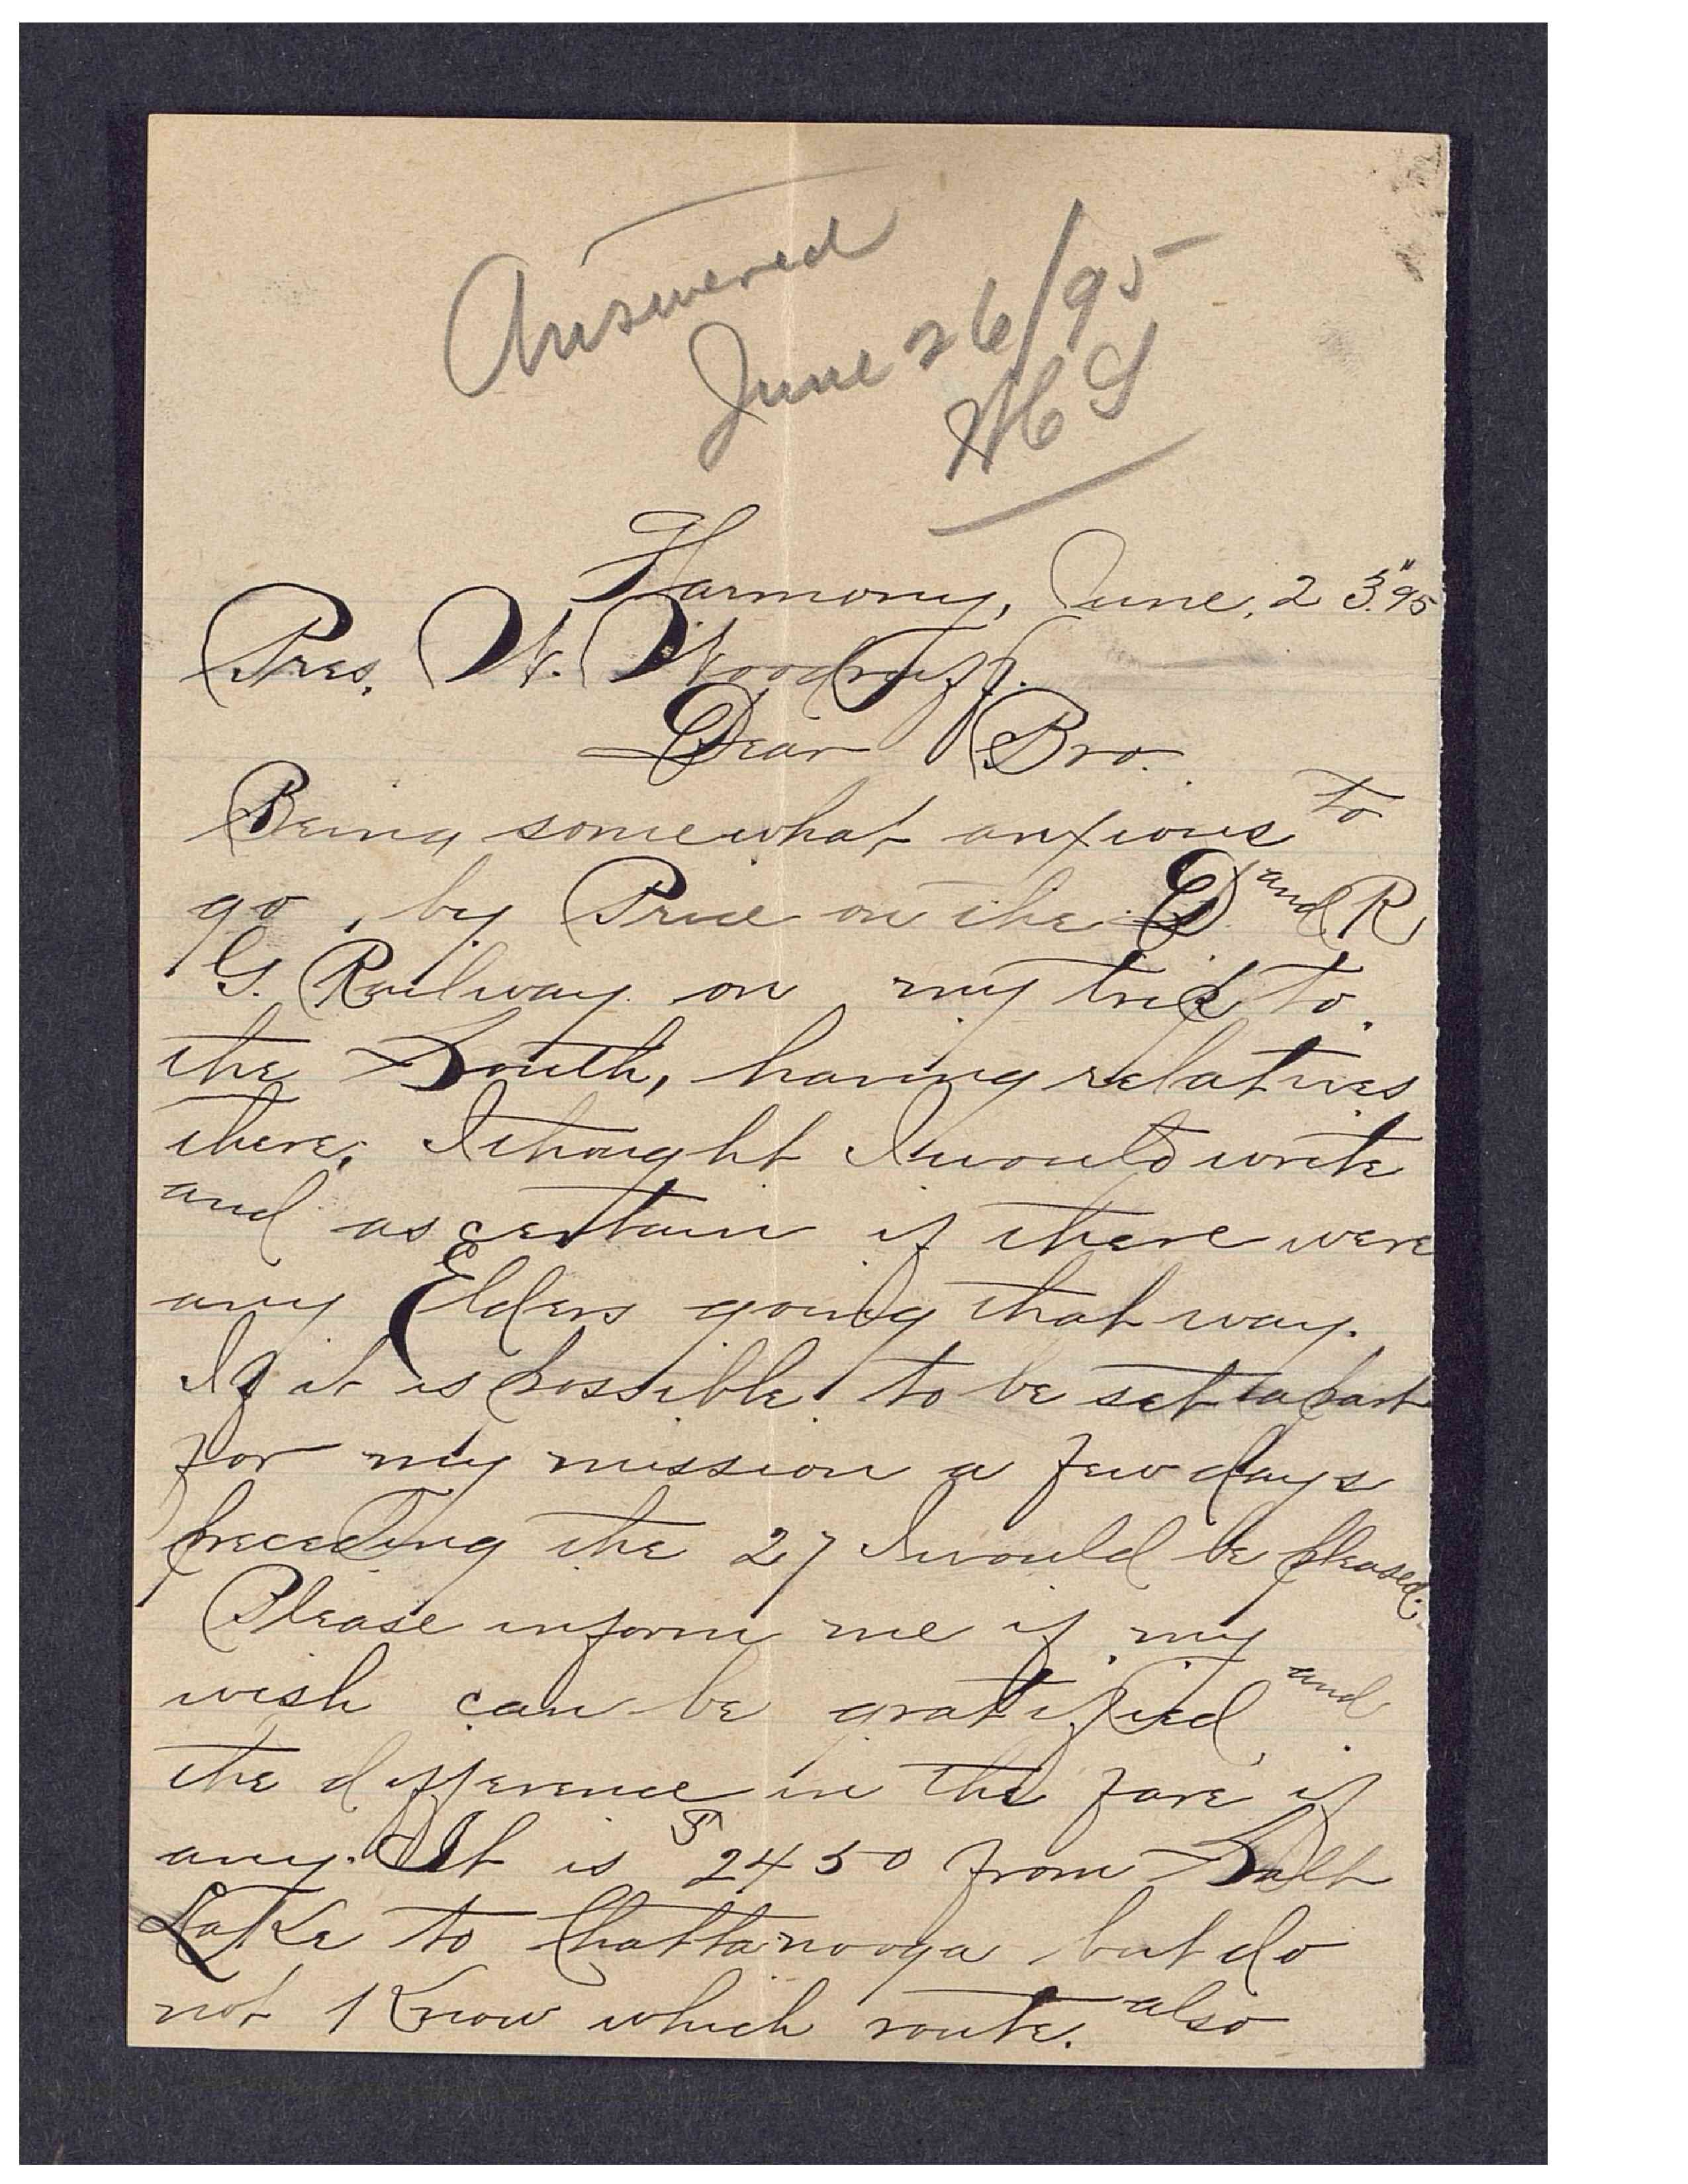 Answered
June 26/95
Harmony, June, 23." 95
Pres. W. Woodruff.
Dear Bro.
Being somewhat anxious to
go, by Price on the D. and R
G. Railway on my trip to
the South, having relatives
there, I thought I would write
and ascertain if there were
any Elders going that way.
If it is possible to be set apart
for my mission a few days
preceding the 27 I would be pleased.
Please inform me if my
wish can be gratified, and
the difference in the fare if
any. It is $24 50 from Salt
Lake to Chattanooga but do
not Know which route. also